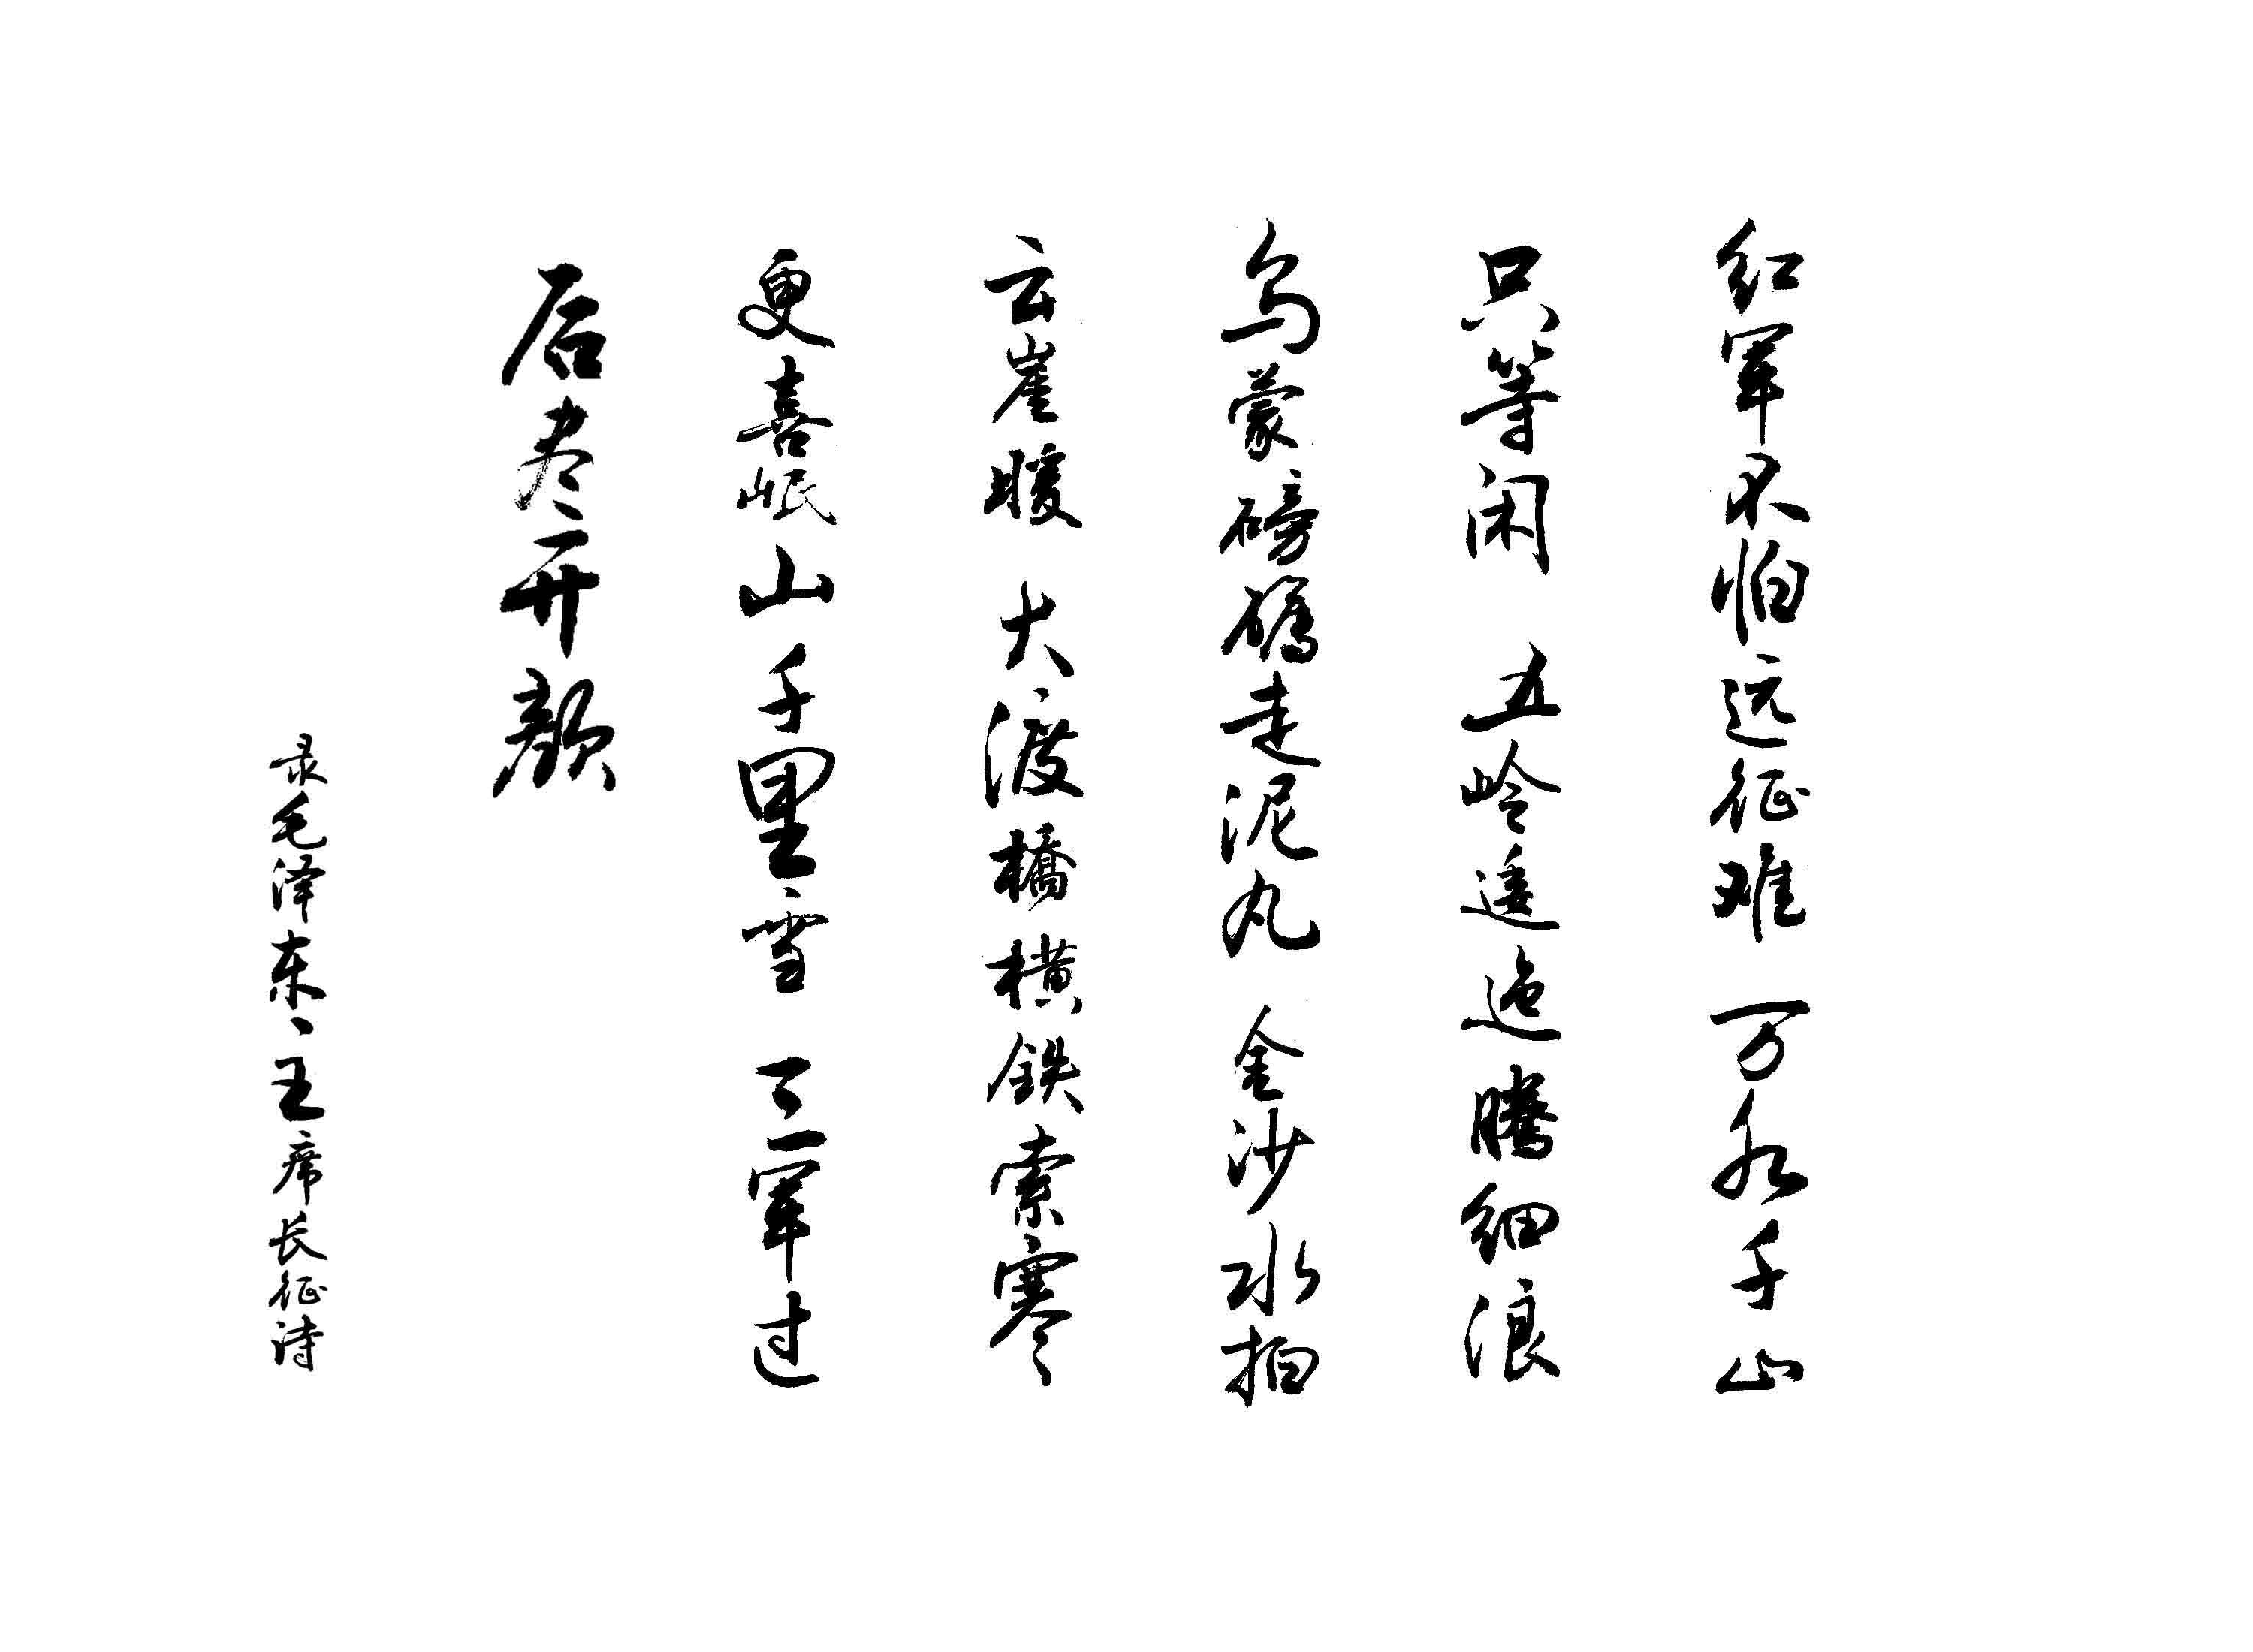 红军不怕远征难 万水千山
只等闲 五岭逶迤腾细浪
乌蒙磅礴走泥丸 金沙水拍
云崖暖 大渡橋横铁索寒
更喜岷山千里雪 三军过
后尽开颜
录毛泽东主席长征诗